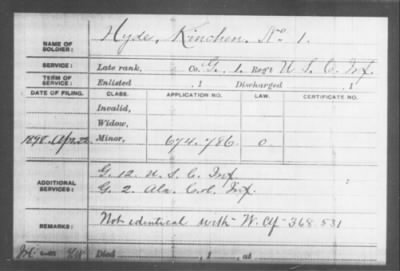 NAME OF SOLDIER: Hyde, Kinchen, No 1.
SERVICE: Late rank, Co. G, 1. Reg't U S. C. Inf.
TERM OF SERVICE: Enlisted , 1 Discharged , 1
DATE OF FILING. CLASS. APPLICATION NO. LAW. CERTIFICATE NO.
Invalid,
Widow,
1890. Minor, 674.786 O.
ADDITIONAL SERVICES: G. 12. U. S. C. Inf
G. 2. Ala. Col. Inf.
REMARKS: Not identical with W. Ctf 368 531
Died , 1 , at